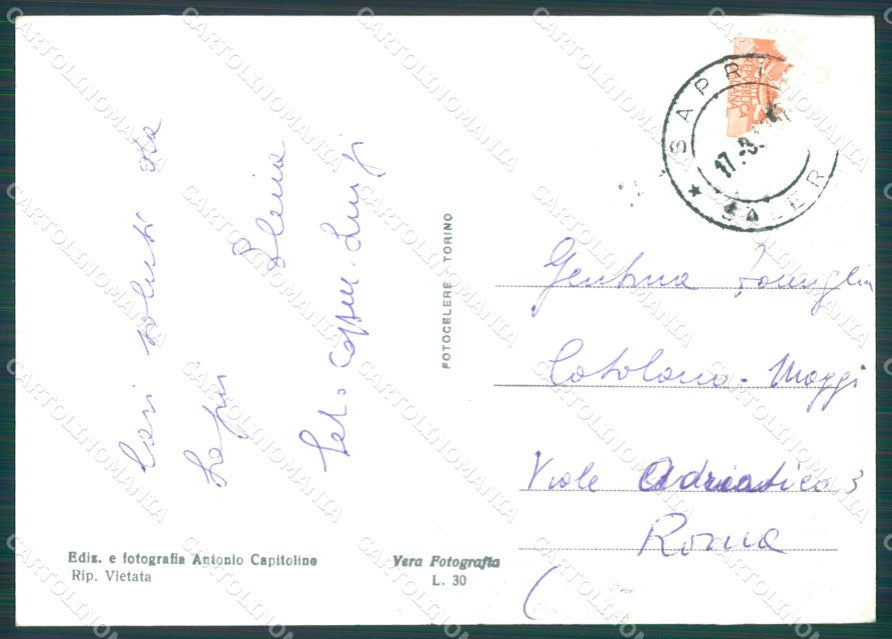 Cari saluti da
Sapri
Elena
Luigi
FOTOCELERE - TORINO
Ediz. e fotografia Antonio Capitolino
Rip. Vietata
Vera Fotografia
L. 30
SAPRI
17.-3.
SALER
Gentma Famiglia
Catalano - Maggi
Viale Adriatico 3
Roma
CARTOLINOMANIA